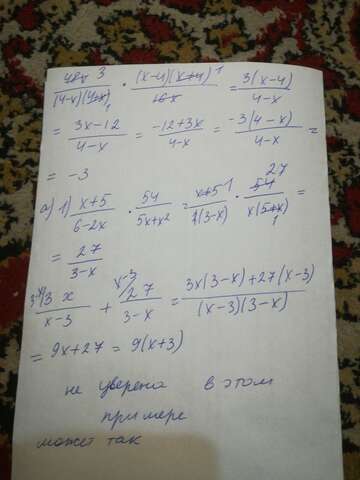 3 / (4-x)(4+x) · (x-4)(x+4) / x = 3(x-4) / 4-x
= 3x-12 / 4-x = -12+3x / 4-x = -3(4-x) / 4-x =
= -3
а) 1) x+5 / 6-2x · 54 / 5x+x² = x+5 / (3-x) · 54 27 / x(5+x) =
= 27 / 3-x
3x / x-3 + 27 / 3-x = 3x(3-x)+27(x-3) / (x-3)(3-x)
= 9x+27 = 9(x+3)
не уверена в этом
примере
может так